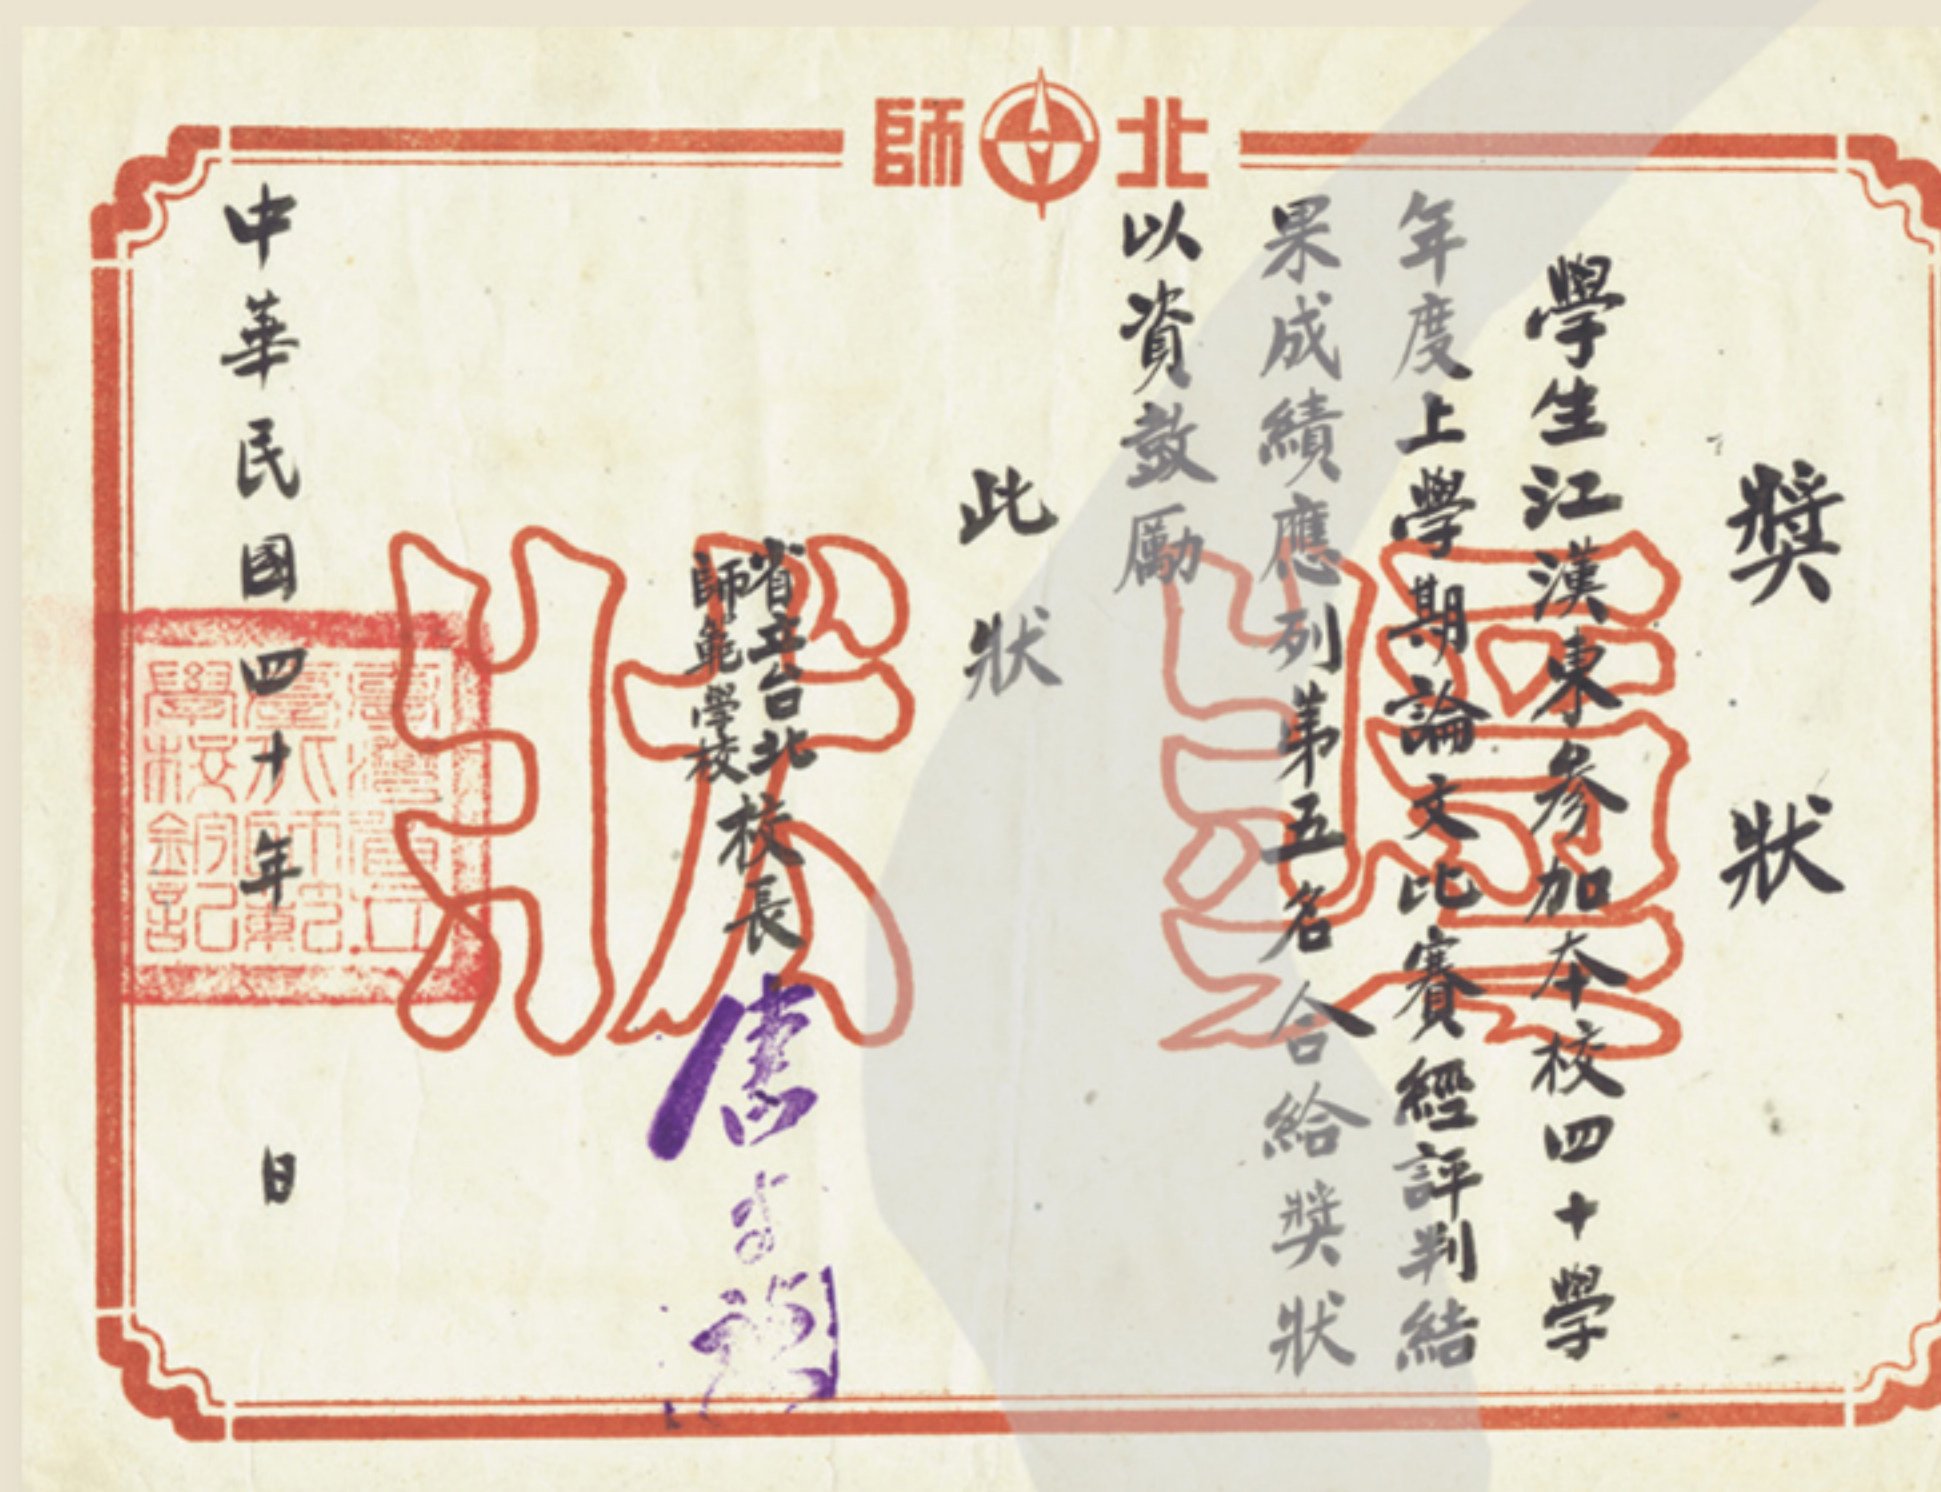 北師
獎狀
學生江漢東參加本校四十學
年度上學期論文比賽經評判結
果成績應列第五名合給獎狀
以資鼓勵
此狀
省立台北
師範學校
校長
中華民國四十年 日
獎狀
臺灣省立
臺北師範
學校鈐記